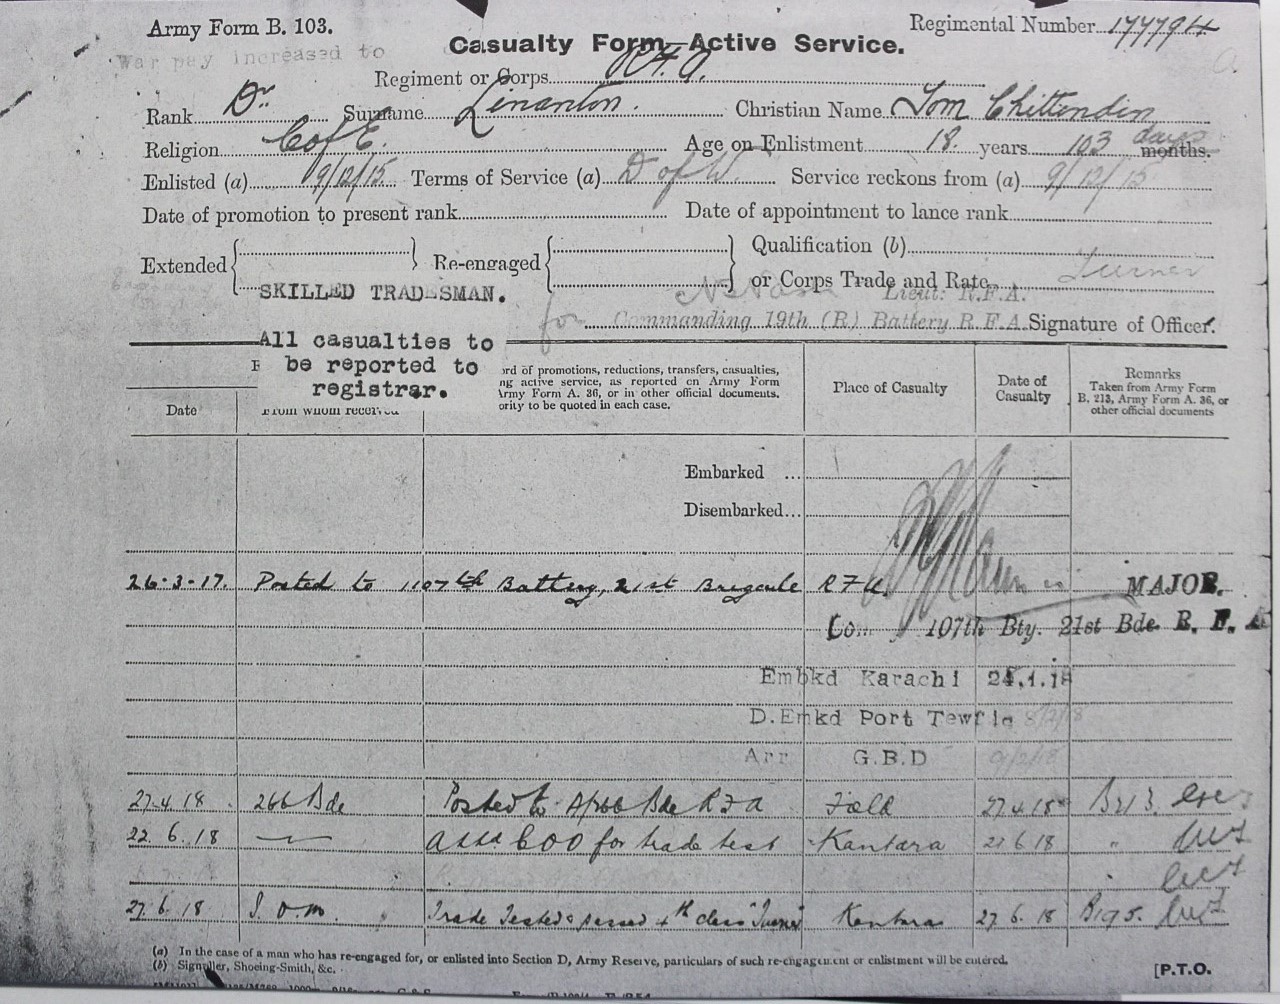 Army Form B. 103.
Regimental Number 177794
War pay increased to
Casualty Form—Active Service.
Regiment or Corps R.F.A.
Rank Dr Surname Linanton. Christian Name Tom Chittenden
Religion C of E. Age on Enlistment 18. years 103 days months.
Enlisted (a) 9/12/15 Terms of Service (a) D of W. Service reckons from (a) 9/12/15
Date of promotion to present rank Date of appointment to lance rank
Extended Re-engaged Qualification (b)
or Corps Trade and Rate Turner
SKILLED TRADESMAN.
Lieut: R.F.A.
for Commanding 19th (R) Battery R.F.A. Signature of Officer.
All casualties to
be reported to
registrar.
Date
From whom received
ord of promotions, reductions, transfers, casualties,
ng active service, as reported on Army Form
Army Form A. 36, or in other official documents.
ority to be quoted in each case.
Place of Casualty
Date of
Casualty
Remarks
Taken from Army Form
B. 213, Army Form A. 36, or
other official documents
Embarked ...
Disembarked...
26-3-17. Posted to 1107th Battery, 21st Brigade R F A.
MAJOR.
Com 107th Bty. 21st Bde R. F. A
Embkd Karachi 24.1.18
D.Emkd Port Tewfic 8/2/18
Arr G.B.D 9/2/18
27.4.18 266 Bde Posted to A/266 Bde R F A Field 27.4.18 B213.
22.6.18 — COO for trade test Kantara 22 6 18 "
27.6.18 I.O.M. Trade Tested & passed 4th class "Turner" Kantara 27 6 18
(a) In the case of a man who has re-engaged for, or enlisted into Section D, Army Reserve, particulars of such re-engagement or enlistment will be entered.
(b) Signaller, Shoeing-Smith, &c.
[P.T.O.